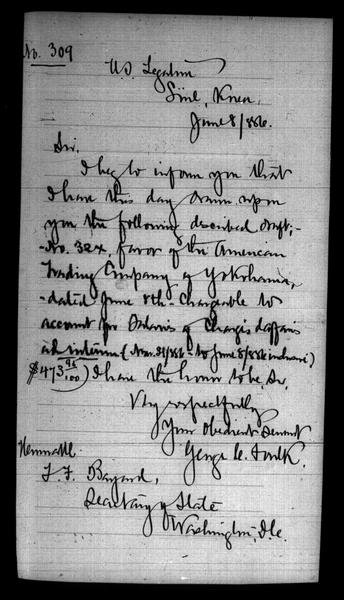 No. 309
U.S. Legation
Söul, Korea,
June 8/886.
Sir.
I beg to inform you that
I have this day drawn upon
you the following described draft;-
-No. 324, favor of the American
Trading Company of Yokohama,
-dated June 8th- Chargeable to
account for Salaries of Chargés d'affaires
ad interim (Mar. 31/86- to June 8/886 inclusive)
$473 96/100) I have the honor to be, Sir,
Very respectfully
Your Obedient Servant
George C. Foulk.
Honorable
T. F. Bayard,
Secretary of State
Washington, D.C.